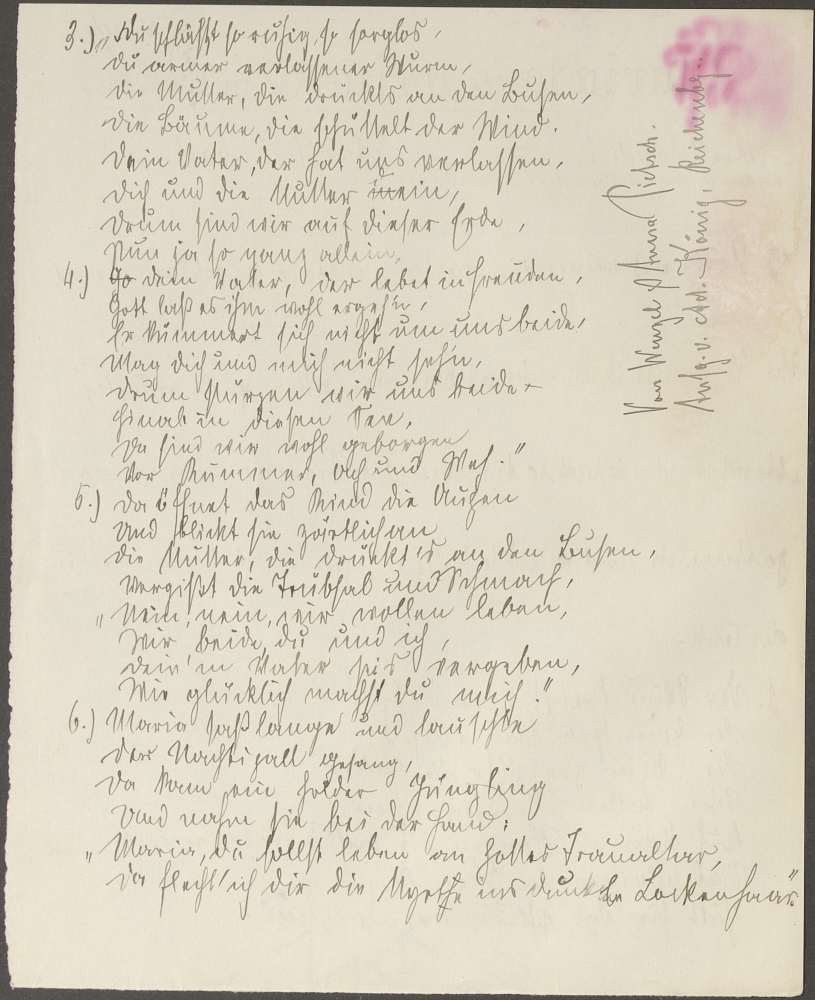 3.) „Du schläfst so ruhig, so sorglos,
du armer verlassener Wurm,
die Mutter, die drückts an den Busen,
die Bäume, die schüttelt der Wind.
Dein Vater, der hat uns verlassen,
dich und die Mutter dein,
drum sind wir auf dieser Erde,
Nun ja so ganz allein.
4.) Ja dein Vater, der lebet in Freuden,
Gott laß es ihm wohl ergeh'n,
Er kümmert sich nicht um uns beide,
Mag dich und mich nicht seh'n,
drum stürzen wir uns beide
hinab in diesen See,
Da sind wir wohl geborgen
Vor Kummer, Ach und Weh."
5.) Da öffnet das Kind die Augen
Und blickt sie zärtlich an
die Mutter, die drückt's an den Busen,
Vergißt die Trübsal und Schmach,
„Nein, nein, wir wollen leben,
Wir beide, du und ich,
dein'm Vater sei's vergeben,
Wie glücklich machst du mich."
6.) Maria saß lange und lauschte
der Nachtigall Gesang,
Da kam ein holder Jüngling
Und nahm sie bei der Hand:
„Maria, du sollst leben an Gottes Traualtar,
Da flecht' ich dir die Myrthe ins dunkle Lockenhaar."
Von Wenzel & Anna Pietsch.
Aufg. v. Ad. König, Reichenbg.